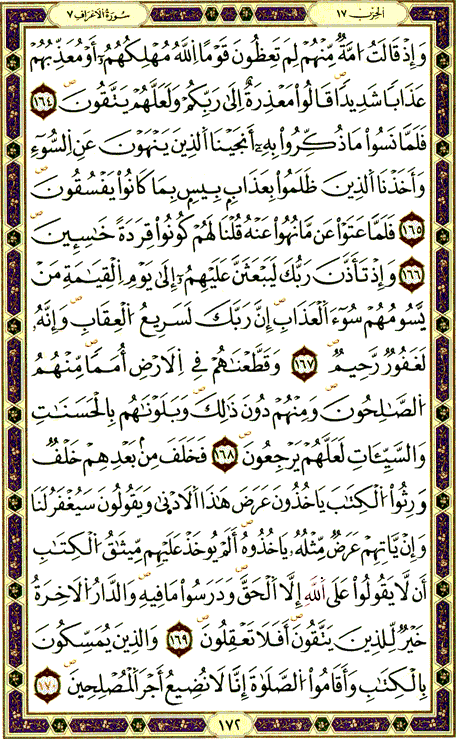 الحزب ١٧
سُورَةُ الْأَعْرَافِ ٧
وَإِذْ قَالَتُ امَّةٌ مِّنْهُمْ لِمَ تَعِظُونَ قَوْمًا اللَّهُ مُهْلِكُهُمُۥٓ أَوْ مُعَذِّبُهُمْ
عَذَابًا شَدِيدًا قَالُواْ مَعْذِرَةٌ إِلَىٰ رَبِّكُمْ وَلَعَلَّهُمْ يَتَّقُونَ ١٦٤
فَلَمَّا نَسُواْ مَا ذُكِّرُواْ بِهِۦٓ أَنجَيْنَا الَّذِينَ يَنْهَوْنَ عَنِ السُّوٓءِ
وَأَخَذْنَا الَّذِينَ ظَلَمُواْ بِعَذَابٍ بِيسٍ بِمَا كَانُواْ يَفْسُقُونَ
١٦٥ فَلَمَّا عَتَوْاْ عَن مَّا نُهُواْ عَنْهُ قُلْنَا لَهُمْ كُونُواْ قِرَدَةً خَاسِئِينَ
١٦٦ وَإِذْ تَأَذَّنَ رَبُّكَ لَيَبْعَثَنَّ عَلَيْهِمُۥٓ إِلَىٰ يَوْمِ الْقِيَامَةِ مَنْ
يَّسُومُهُمْ سُوٓءَ الْعَذَابِ إِنَّ رَبَّكَ لَسَرِيعُ الْعِقَابِ وَإِنَّهُۥ
لَغَفُورٌ رَّحِيمٌ ١٦٧ وَقَطَّعْنَاهُمْ فِي الَارْضِ أُمَمًا مِّنْهُمُ
الصَّالِحُونَ وَمِنْهُمْ دُونَ ذَٰلِكَ وَبَلَوْنَاهُم بِالْحَسَنَاتِ
وَالسَّيِّـَٔاتِ لَعَلَّهُمْ يَرْجِعُونَ ١٦٨ فَخَلَفَ مِنۢ بَعْدِهِمْ خَلْفٌ
وَرِثُواْ الْكِتَابَ يَاخُذُونَ عَرَضَ هَٰذَا الَادْنَىٰ وَيَقُولُونَ سَيُغْفَرُ لَنَا
وَإِنْ يَّاتِهِمْ عَرَضٌ مِّثْلُهُۥ يَاخُذُوهُ أَلَمْ يُوخَذْ عَلَيْهِم مِّيثَاقُ الْكِتَابِ
أَن لَّا يَقُولُواْ عَلَى اللَّهِ إِلَّا الْحَقَّ وَدَرَسُواْ مَا فِيهِ وَالدَّارُ الَاخِرَةُ
خَيْرٌ لِّلَّذِينَ يَتَّقُونَ أَفَلَا تَعْقِلُونَ ١٦٩ وَالَّذِينَ يُمَسِّكُونَ
بِالْكِتَابِ وَأَقَامُواْ الصَّلَوٰةَ إِنَّا لَا نُضِيعُ أَجْرَ الْمُصْلِحِينَ ١٧٠
١٧٢